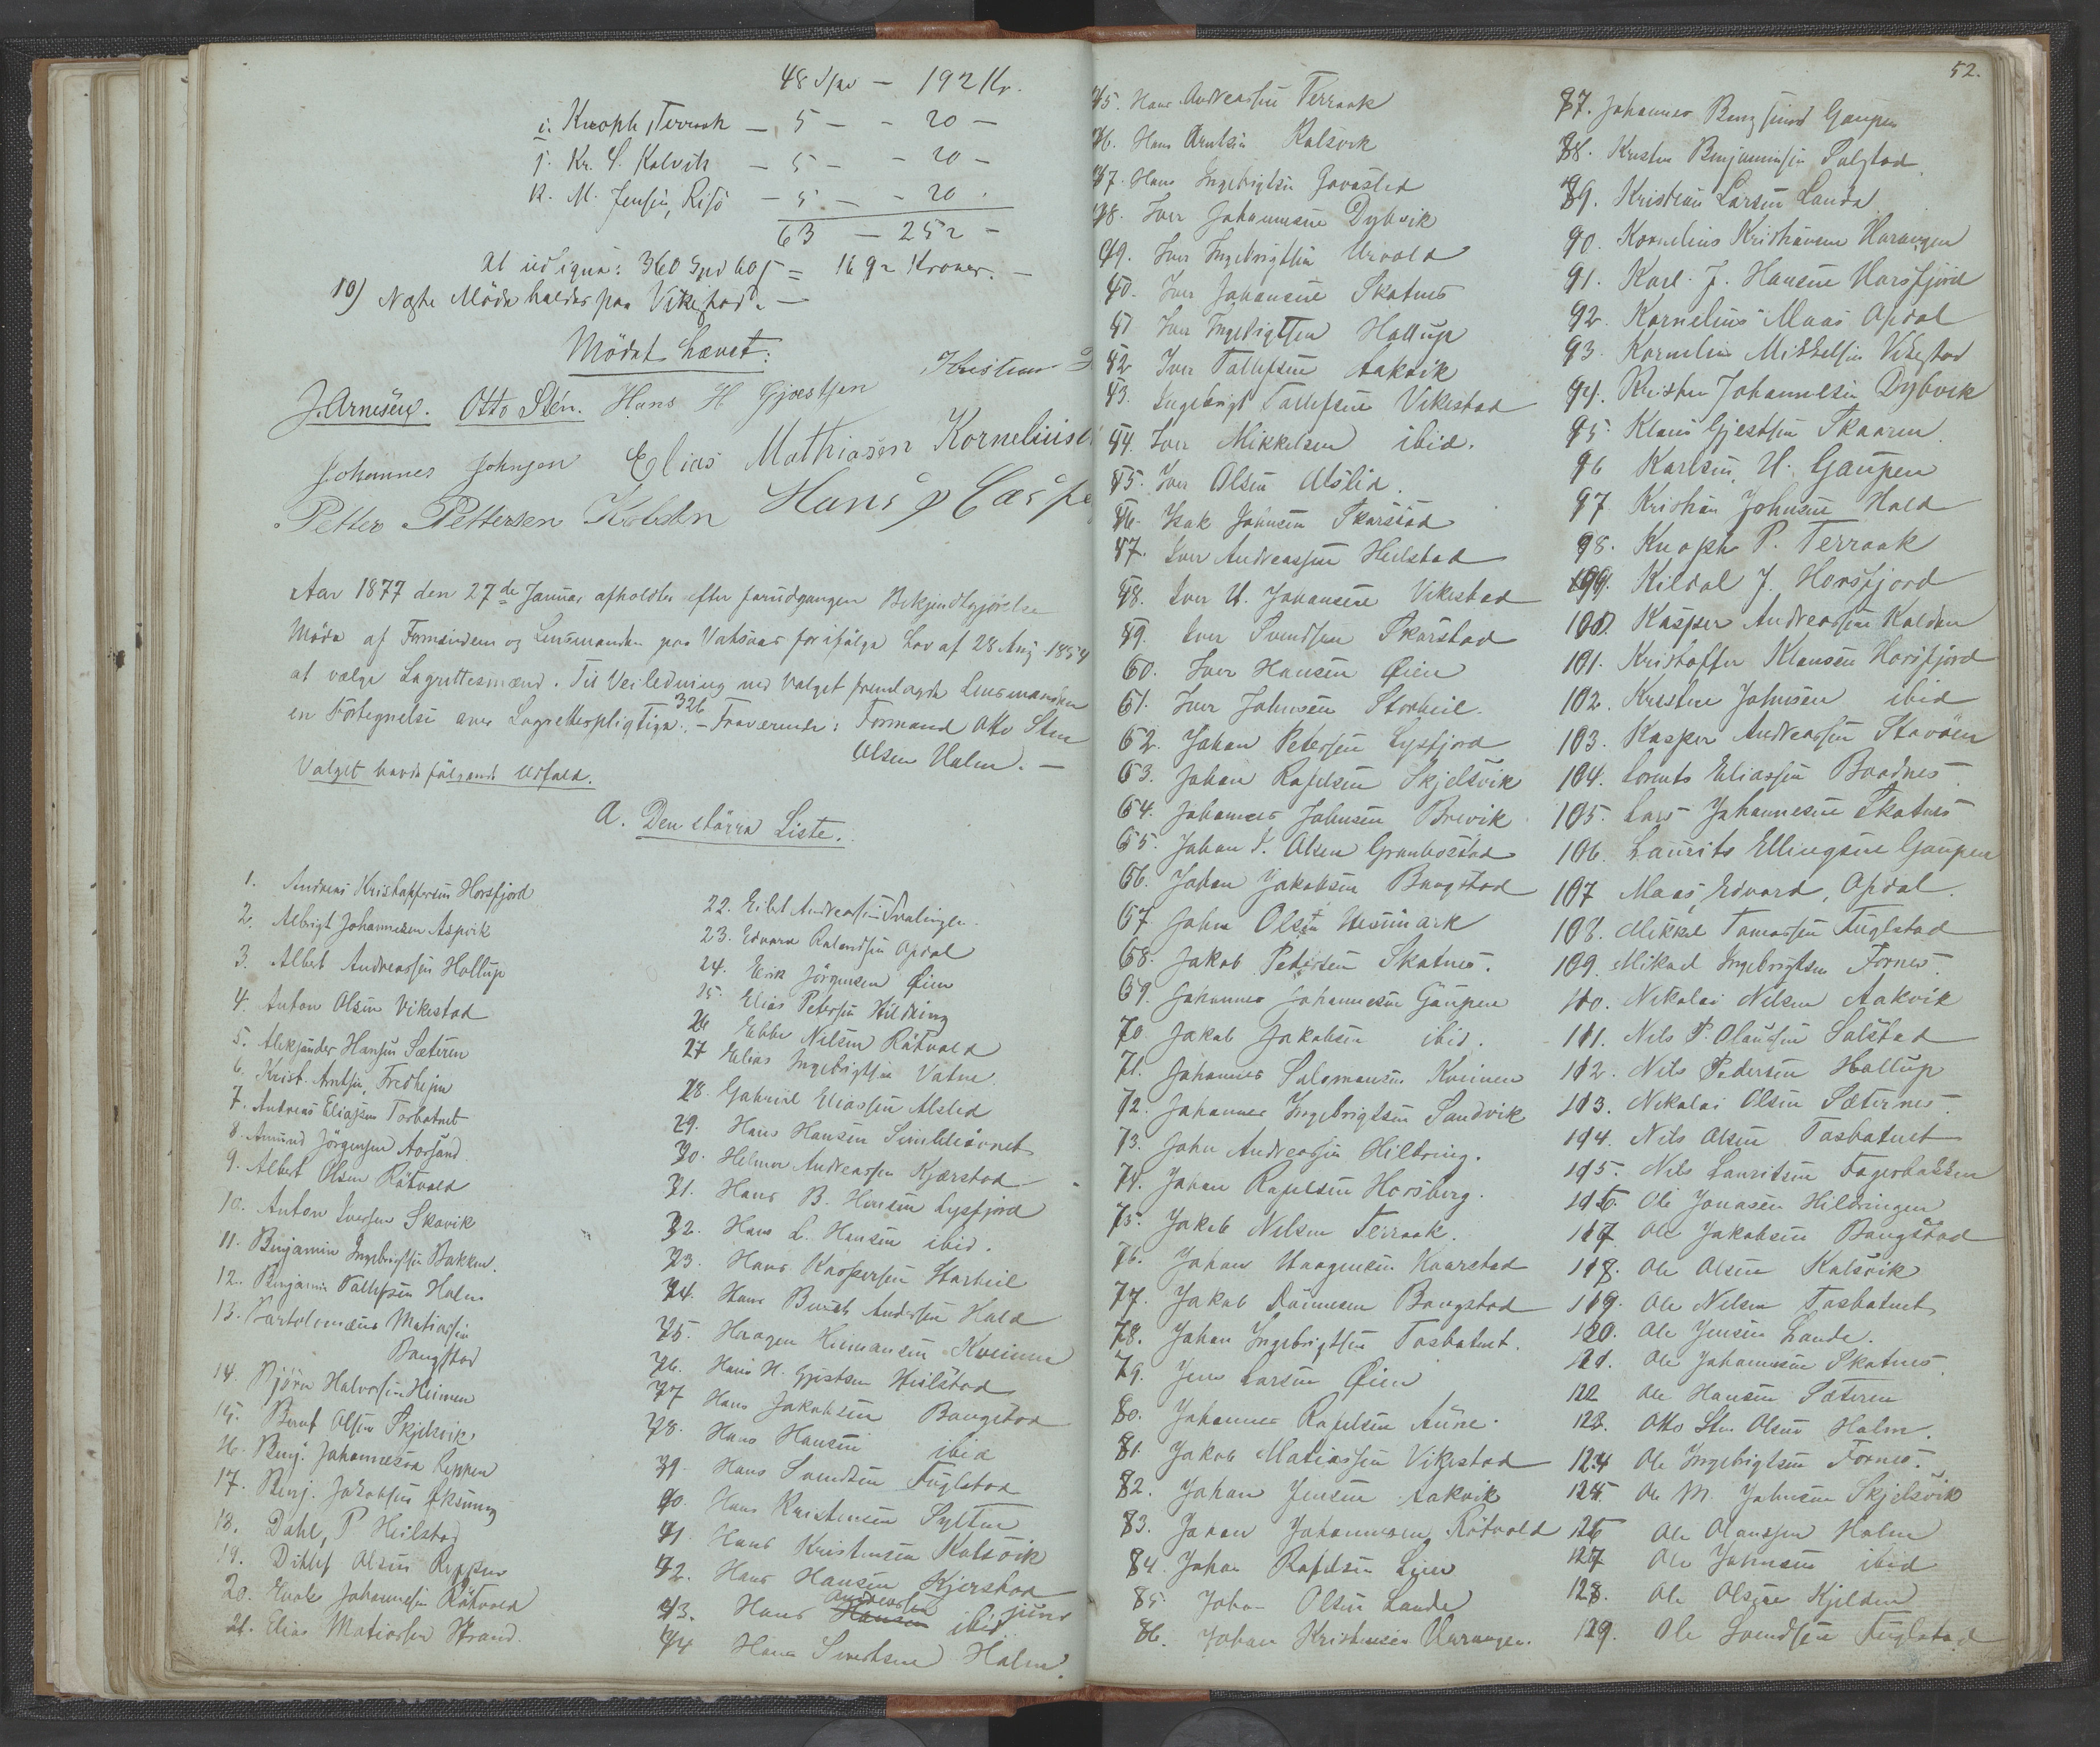 48 Spd – 192 Kr.
i. Knoph, Terraak – 5 – – 20 –
j. Kr. S. Kalvik – 5 – – 20 –
k. M. Jensen, Risö – 5 – – 20 .
63 – 252 –
at udligne: 360 Spd 60 = Kroner. –
10) Næste Möde holdes paa Vikestad. –
Mödet hævet:
J. Arnesen. Otto Sten. Hans H Gjæstsen Kristian
Johannes Johnsen Elias Mathiasen Kornelius
Petter Pettersen Kolden Hans
Aar 1877 den 27de Januar afholdtes efter forudgangen Bekjendtgjörelse
Möde af Formanden og Lensmanden paa Vatsaas for ifölge Lov af 28 Aug. 1854
at vælge Lagrettesmænd. Til Veiledning ved Valget fremlagde Lensmanden
en Fortegnelse over 326 Lagrettespligtige. – Fraværende: Formand Otto Sten
Olsen Halm. –
Valget havde fölgende Udfald.
A. Den större Liste.
1. Andreas Kristoffersen Horsfjord
2. Albrigt Johannesen Aspvik
3. Albert Andreassen Hallup
4. Anton Olsen Vikestad
5. Aleksander Hansen Sæteren
6. Krist. Arntsen, Fredheim
7. Andreas Eliassen Tosbotnet
8. Amund Jörgensen Aarsand
9. Albert Olsen Råtvold
10. Anton Iversen Skavik
11. Benjamin Ingebrigtsen Bakken.
12. Benjamin Tollefsen Halm
13. Bartolomæus Matiassen
Bangstad
14. Björn Halvorsen Heimen
15. Bernt Olsen Skjelsvik
16. Benj. Johannesen Reppen
17. Benj. Jakobsen
18. Dahl, P Heilstad
19. Ditlef Olsen Reppen
20. Johannesen Råtvold
21. Elias Matiassen Strand.
22. Eilert Andreassen
23. Edvard Rolandsen Opdal
24. Erik Jörgensen Öien
25. Elias Petersen Hildring
26 Ebbe Nilsen Råtvold
27 Elias Ingebrigtsen Vatne
28. Gabriel Eliassen Alsled
29. Hans Hansen Simlelivnet
30. Helmer Andreassen Kjærstad
31. Hans B. Hansen Lysfjord
32. Hans L. Hansen ibid.
33. Hans Kaspersen Storheil
34. Hans Buscb Andersen Hald
35. Haagen Hermansen Kveinen
36. Hans H. Gjestsen Heilstad
37 Hans Jakobsen Bangstad
38. Hans Hansen ibid
39 Hans Svendsen Fuglstad
40. Hans Kristensen Sylten
41. Hans Kristensen Kalsvik
42. Hans Hansen Kjerstad
43. Hans Andreassen ibid. junr
44 Hans Sivertsen Halm.
52.
45. Hans Andreassen Terraak
46. Hans Arntsen Kalsvik
47. Hans Ingebrigtsen
48. Iver Johannesen Dybvik
49. Iver Ingebrigtsen Urvold
50. Iver Johansen Skatnes
51 Iver Ingebrigtsen Hallup
52 Iver Tollefsen Aakvik
53. Ingebrigt Tollefsen Vikestad
54. Iver Mikkelsen ibid.
55. Iver Olsen Alslid.
56. Isak Johnsen Skarstad
57. Iver Andreassen Heilstad
58. Iver U. Johansen Vikestad
59. Iver Svendsen Skarstad
60. Iver Hansen Öien
61. Iver Johnsen Storheil.
62. Johan Petersen Lysfjord
63. Johan Rafelsen Skjelsvik
64. Johannes Johnsen Brevik
65. Johan I. Olsen Granbostad
66. Johan Jakobsen Bangstad
67. Johan Olsen Hesmark
68. Jakob Pedersen Skatnes.
69. Johannes Johannesen Gaupen
70 Jakob Jakobsen ibid.
71. Johannes Salomonsen Kveinen
72. Johannes Ingebrigtsen Sandvik
73. John Andreassen Hildring.
74. Johan Rafelsen Horsberg.
75. Jakob Nilsen Terraak.
76. Johan Haagensen Kaarstad
77. Jakob Bangstad
78. Johan Ingebrigtsen Tosbotnet.
79. Jens Larsen Öien
80. Johannes Rafelsen Aune.
81. Jakob Matiassen Vikestad
82. Johan Jensen Aakvik
83. Johan Johannesen Råtvold
84. Johan Rafelsen Lien
85. Johan Olsen Lande
86. Johan Kristensen Harangen.
87. Johannes Gaupen
88. Kristen Benjaminsen Salstad
89. Kristian Larsen Lande
90. Kornelius Kristiansen Harangen
91. Karl J. Hansen Horsfjord
92. Kornelius Maas Opdal
93. Kornelius Mikkelsen Vikestad
94. Kristen Johannesen Dybvik
95. Klaus Gjestsen Skaaren.
96 Karlsen, H. Gaupen
97 Kristian Johnsen Hald
98. Knoph P. Terraak
99. Kildal J. Horsfjord
100. Kasper Andreassen Kalden
101. Kristoffer Klausen Horsfjord
102. Kristen Johnsen ibid
103. Kasper Andreassen Stavöen
104. Lorents Eliassen Baadnes
105. Lars Johannesen Skatnes
106. Laurits Ellingsen Gaupen
107 Maas, Edvard, Opdal.
108. Mikkel Tomassen Fuglstad
109. Mikael Ingebrigtsen Fornes.
110. Nikolai Nilsen Aakvik
111. Nils P. Olaussen Salstad
112. Nils Pedersen Hallup
113. Nikolai Olsen Sæternes
114. Nils Olsen Tosbotnet
115. Nils Lauritsen Fagerbakken
116. Ole Jonasen Hildringen
117. Ole Jakobsen Bangstad
118. Ole Olsen Kalsvik
119. Ole Nilsen Tosbotnet
120. Ole Jensen Lande.
121. Ole Johannesen Skatnes
122 Ole Hansen Sæteren
123. Otto Stn. Olsen Halm.
124 Ole Ingebrigtsen Fornes.
125. Ole M. Johnsen Skjelsvik
126 Ole Olaussen Halm
127 Ole Johnsen ibid
128. Ole Olsen Kjelden
129. Ole Svendsen Fuglstad